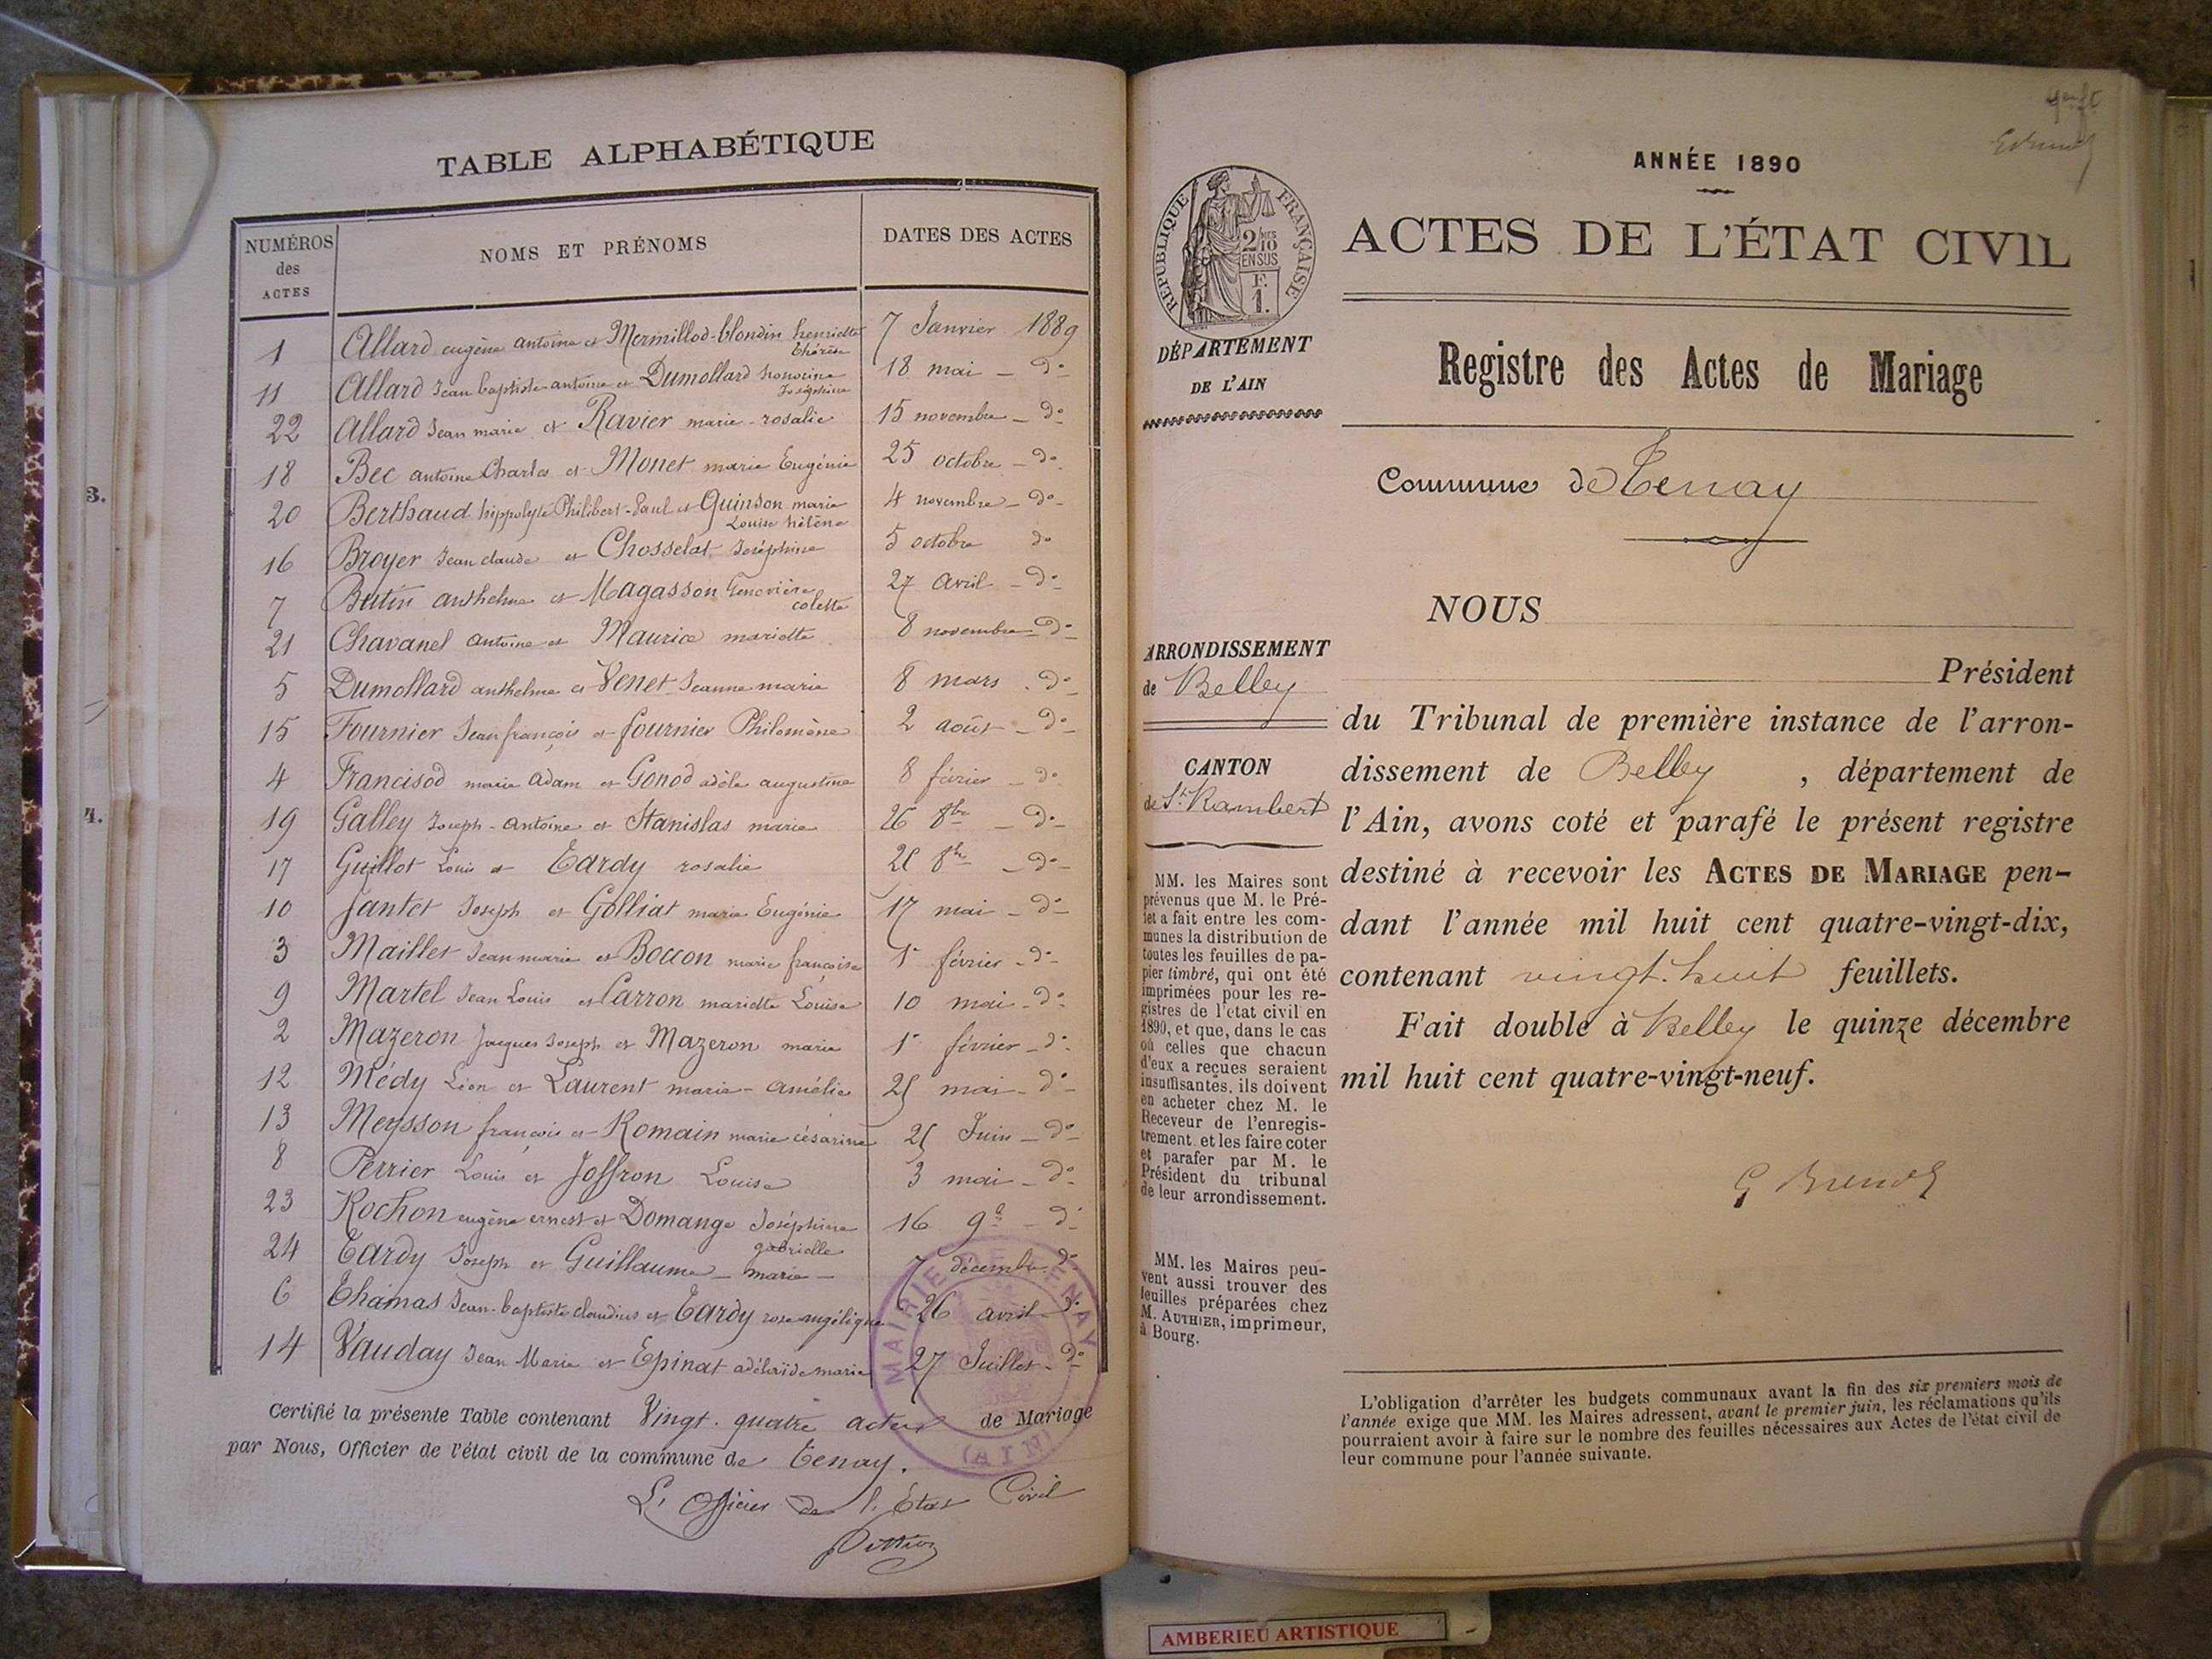 TABLE ALPHABÉTIQUE
NUMÉROS des ACTES NOMS ET PRÉNOMS DATES DES ACTES
1 Allard eugène antoine et Mermillod-blondin henriette Thérèse 7 Janvier 1889
11 Allard Jean baptiste antoine et Dumollard honorine Joséphine 18 mai - do
22 Allard Jean marie et Ravier marie-rosalie 15 novembre - do
18 Bec antoine Charles et Monet marie Eugénie 25 octobre - do
20 Berthaud hippolyte Philibert-Paul et Quinson marie Louise hélène 4 novembre - do
16 Broyer Jean claude et Chosselat Joséphine 5 octobre do
7 Butin anthelme et Magasson Geneviève colette 27 avril - do
21 Chavanel antoine et Maurice mariette 8 novembre - do
5 Dumollard anthelme et Venet Jeanne marie 8 mars - do
15 Fournier Jean françois et fournier Philomène 2 août - do
4 Francisod marie Adam et Gonod adèle augustine 8 février - do
19 Galley Joseph-Antoine et Stanislas marie 26 8bre - do
17 Guillot Louis et Tardy rosalie 8bre - do
10 Jantet Joseph et Golliat marie Eugénie 17 mai - do
3 Maillet Jean marie et Boccon marie françoise 1er février - do
9 Martel Jean Louis et Carron mariette Louise 10 mai - do
2 Mazeron Jacques Joseph et Mazeron marie 1er février - do
12 Médy Léon et Laurent marie-amélie mai - do
13 Meysson françois et Romain marie césarine Juin - do
8 Perrier Louis et Joffron Louise 3 mai - do
23 Rochon eugène ernest et Domange Joséphine gabrielle 16 9bre - do
24 Tardy Joseph et Guillaume - marie - 7 décembre do
6 Thamas Jean-baptiste claudius et Tardy rose angélique 26 avril - do
14 Vauday Jean Marie et Epinat adélaïde marie 27 Juillet - do
Certifié la présente Table contenant Vingt-quatre actes de Mariage
par Nous, Officier de l'état civil de la commune de Tenay.
L'officier de l'État Civil
MAIRIE DE TENAY
(AIN)
3.
4.
ANNÉE 1890
ACTES DE L'ÉTAT CIVIL
RÉPUBLIQUE FRANÇAISE
2/10 EN SUS
F. 1.
DÉPARTEMENT
DE L'AIN
Registre des Actes de Mariage
Commune de Tenay
NOUS
ARRONDISSEMENT
de Belley
CANTON
de St Rambert
Président
du Tribunal de première instance de l'arron-
dissement de Belley , département de
l'Ain, avons coté et parafé le présent registre
destiné à recevoir les ACTES DE MARIAGE pen-
dant l'année mil huit cent quatre-vingt-dix,
contenant vingt-huit feuillets.
Fait double à Belley le quinze décembre
mil huit cent quatre-vingt-neuf.
MM. les Maires sont
prévenus que M. le Pré-
fet a fait entre les com-
munes la distribution de
toutes les feuilles de pa-
pier timbré, qui ont été
imprimées pour les re-
gistres de l'état civil en
1890, et que, dans le cas
où celles que chacun
d'eux a reçues seraient
insuffisantes, ils doivent
en acheter chez M. le
Receveur de l'enregis-
trement et les faire coter
et parafer par M. le
Président du tribunal
de leur arrondissement.
MM. les Maires peu-
vent aussi trouver des
feuilles préparées chez
M. AUTHIER, imprimeur,
à Bourg.
L'obligation d'arrêter les budgets communaux avant la fin des six premiers mois de
l'année exige que MM. les Maires adressent, avant le premier juin, les réclamations qu'ils
pourraient avoir à faire sur le nombre des feuilles nécessaires aux Actes de l'état civil de
leur commune pour l'année suivante.
AMBERIEU ARTISTIQUE